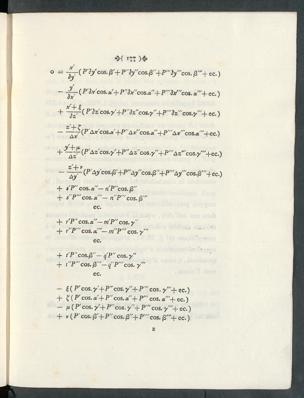 ( 177 )
0 = x'/∂y ( P'∂y'cos.β' + P''∂y''cos.β'' + P'''∂y'''cos.β''' + ec.)
− y'/∂x ( P'∂x'cos.α' + P''∂x''cos.α'' + P'''∂x'''cos.α''' + ec.)
+ x'+ξ/∂z ( P'∂z'cos.γ' + P''∂z''cos.γ'' + P'''∂z'''cos.γ''' + ec.)
− z'+ζ/Δx ( P'Δx'cos.α' + P''Δx''cos.α'' + P'''Δx'''cos.α''' + ec.)
+ y'+μ/Δz ( P'Δz'cos.γ' + P''Δz''cos.γ'' + P'''Δz'''cos.γ''' + ec.)
− z'+ν/Δy ( P'Δy'cos.β' + P''Δy''cos.β'' + P'''Δy'''cos.β''' + ec.)
+ s'P''cos.α'' − n'P''cos.β''
+ s''P'''cos.α''' − n''P'''cos.β'''
ec.
+ r'P''cos.α'' − m'P''cos.γ''
+ r''P'''cos.α''' − m''P'''cos.γ'''
ec.
+ t'P''cos.β'' − q'P''cos.γ''
+ t''P'''cos.β''' − q''P'''cos.γ'''
ec.
− ξ ( P'cos.γ' + P''cos.γ'' + P'''cos.γ''' + ec.)
+ ζ ( P'cos.α' + P''cos.α'' + P'''cos.α''' + ec.)
− μ ( P'cos.γ' + P''cos.γ'' + P'''cos.γ''' + ec.)
+ ν ( P'cos.β' + P''cos.β'' + P'''cos.β''' + ec.)